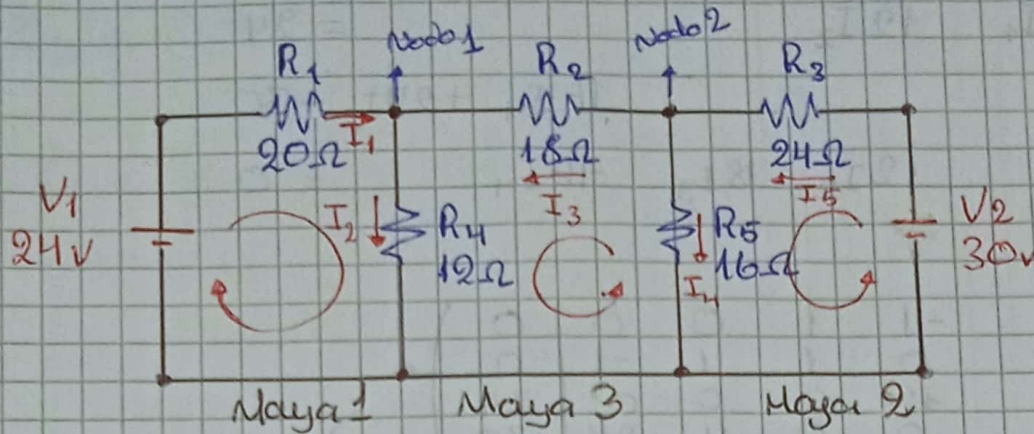 Nodo1
Nodo2
R1
R2
R3
20Ω
I1
18Ω
24Ω
I3
I5
V1
24v
I2
R4
12Ω
R5
16Ω
I4
V2
30v
Maya 1
Maya 3
Maya 2